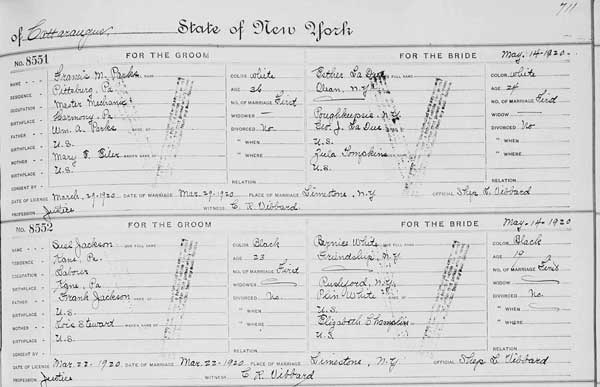 711
of Cattaraugus, State of New York
No. 8551 FOR THE GROOM FOR THE BRIDE May. 14-1920.
NAME Francis M. Parks FULL NAME COLOR White Esther La Due FULL NAME COLOR White
RESIDENCE Pittsburg, Pa AGE 36 Olean, N.Y. AGE 24
OCCUPATION Master Mechanic NO. OF MARRIAGE First NO. OF MARRIAGE First
BIRTHPLACE Harmony, Pa WIDOWER Poughkeepsie, N.Y. WIDOW
FATHER Wm. A. Parks DIVORCED No Geo. J. La Due DIVORCED No
BIRTHPLACE U.S. " WHEN U.S. " WHEN
MOTHER Mary F. MAIDEN NAME " WHERE Zula Tompkins " WHERE
BIRTHPLACE U.S. U.S.
CONSENT BY RELATION RELATION
DATE OF LICENSE March. 29-1920 DATE OF MARRIAGE Mar. 29-1920 PLACE OF MARRIAGE Limestone, N.Y OFFICIAL Shep L. Vibbard
PROFESSION Justice WITNESS C. R. Vibbard
No. 8552 FOR THE GROOM FOR THE BRIDE May. 14-1920
NAME Jackson FULL NAME COLOR Black Bernice White FULL NAME COLOR Black
RESIDENCE Kane, Pa. AGE 23 Friendship, N.Y. AGE 19
OCCUPATION Labour NO. OF MARRIAGE First NO. OF MARRIAGE First
BIRTHPLACE Kane, Pa WIDOWER Rushford, N.Y. WIDOW
FATHER Frank Jackson DIVORCED No. White DIVORCED No.
BIRTHPLACE U.S. " WHEN U.S. " WHEN
MOTHER Lois Steward MAIDEN NAME " WHERE Elizabeth Champlin " WHERE
BIRTHPLACE U.S. U.S.
CONSENT BY RELATION RELATION
DATE OF LICENSE Mar. 22-1920 DATE OF MARRIAGE Mar. 22-1920 PLACE OF MARRIAGE Limestone, N.Y OFFICIAL Shep L. Vibbard
PROFESSION Justice WITNESS C. R. Vibbard